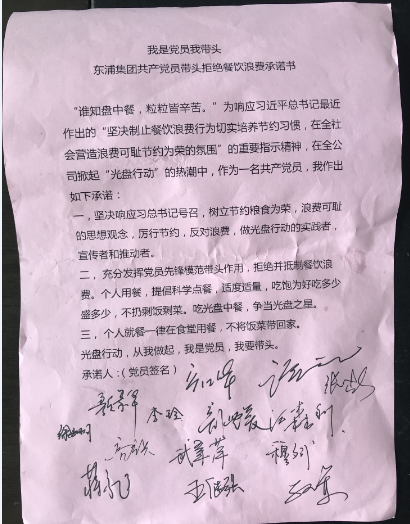 我是党员我带头
东浦集团共产党员带头拒绝餐饮浪费承诺书
“谁知盘中餐，粒粒皆辛苦。”为响应习近平总书记最近
作出的“坚决制止餐饮浪费行为切实培养节约习惯，在全社
会营造浪费可耻节约为荣的氛围”的重要指示精神，在全公
司掀起“光盘行动”的热潮中，作为一名共产党员，我作出
如下承诺：
一，坚决响应习总书记号召，树立节约粮食为荣，浪费可耻
的思想观念，厉行节约，反对浪费，做光盘行动的实践者，
宣传者和推动者。
二，充分发挥党员先锋模范带头作用，拒绝并抵制餐饮浪
费。个人用餐，提倡科学点餐，适度适量，吃饱为好吃多少
盛多少，不扔剩饭剩菜。吃光盘中餐，争当光盘之星。
三，个人就餐一律在食堂用餐，不将饭菜带回家。
光盘行动，从我做起，我是党员，我要带头。
承诺人：（党员签名）